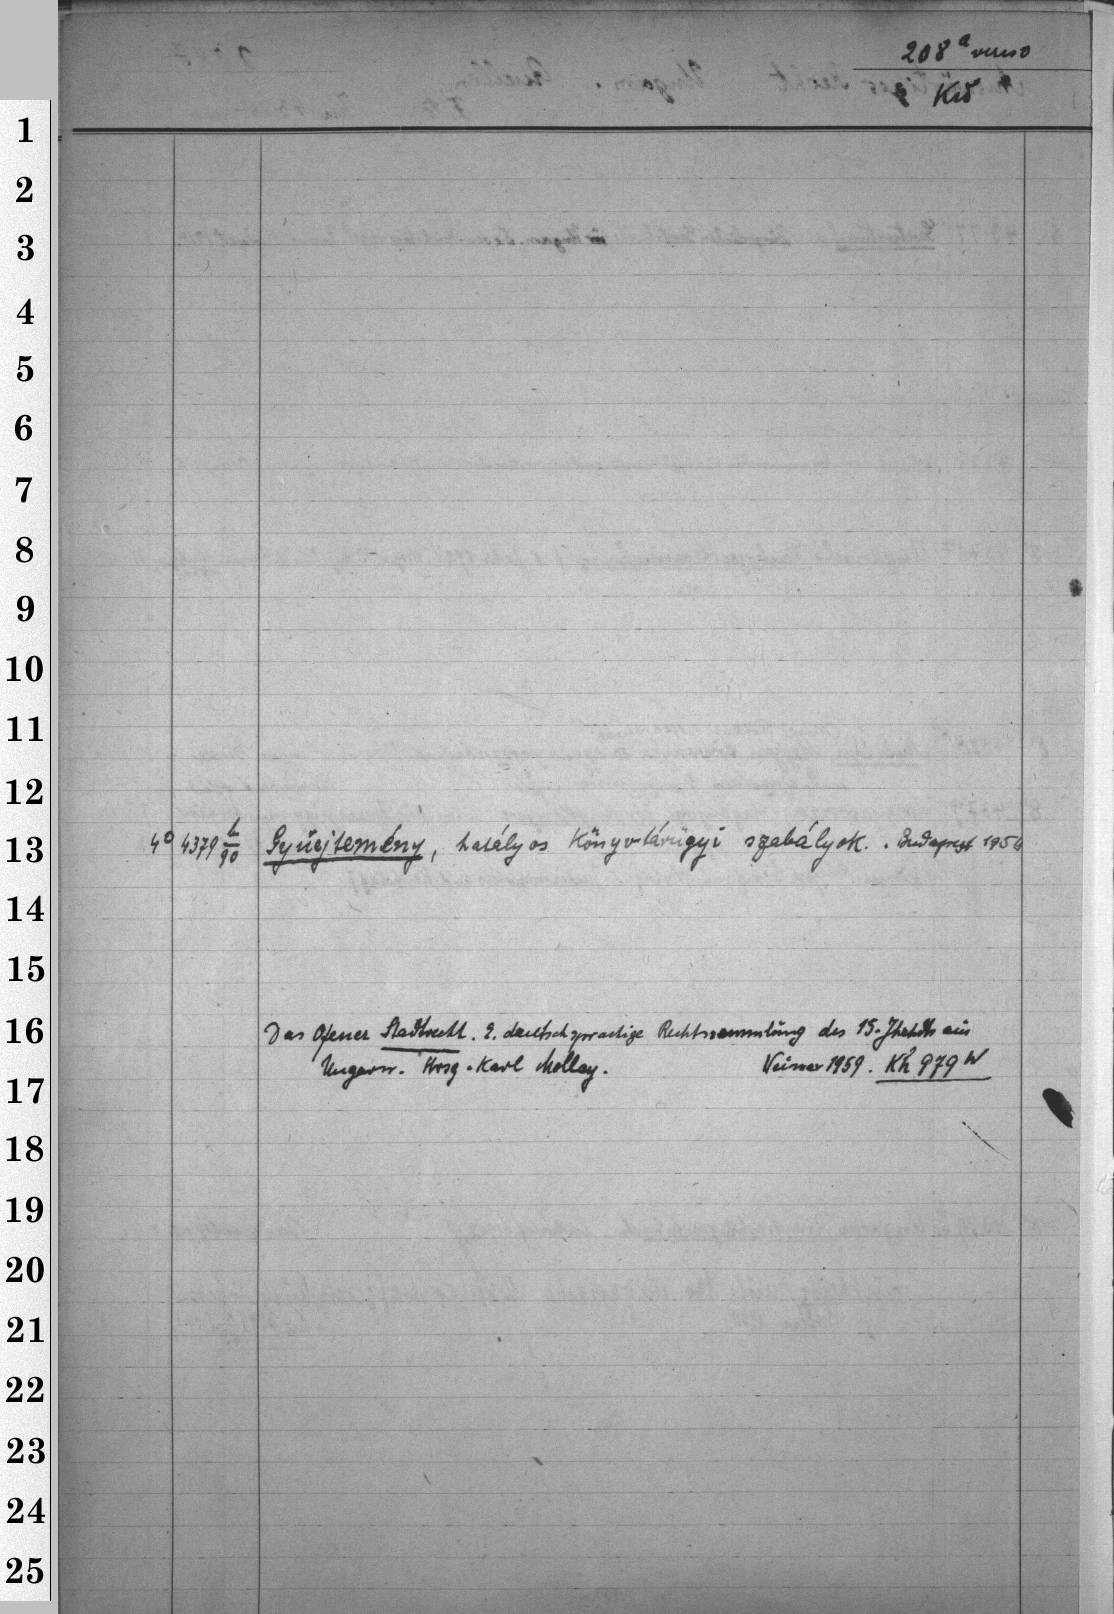 208ª verso
Kd
1
2
3
4
5
6
7
8
9
10
11
12
13
4° 4379 b/90 Gyüjtemény, hatályos Könyvtárügyi szabályok. . Budapest 1956
14
15
16
Das Ofener Stadtrecht. E. deutschsprachige Rechtssammlung des 15. Jhrhdts aus
Ungarn. Hrsg. Karl Mollay. Weimar 1959. Kh 979 W
17
18
19
20
21
22
23
24
25